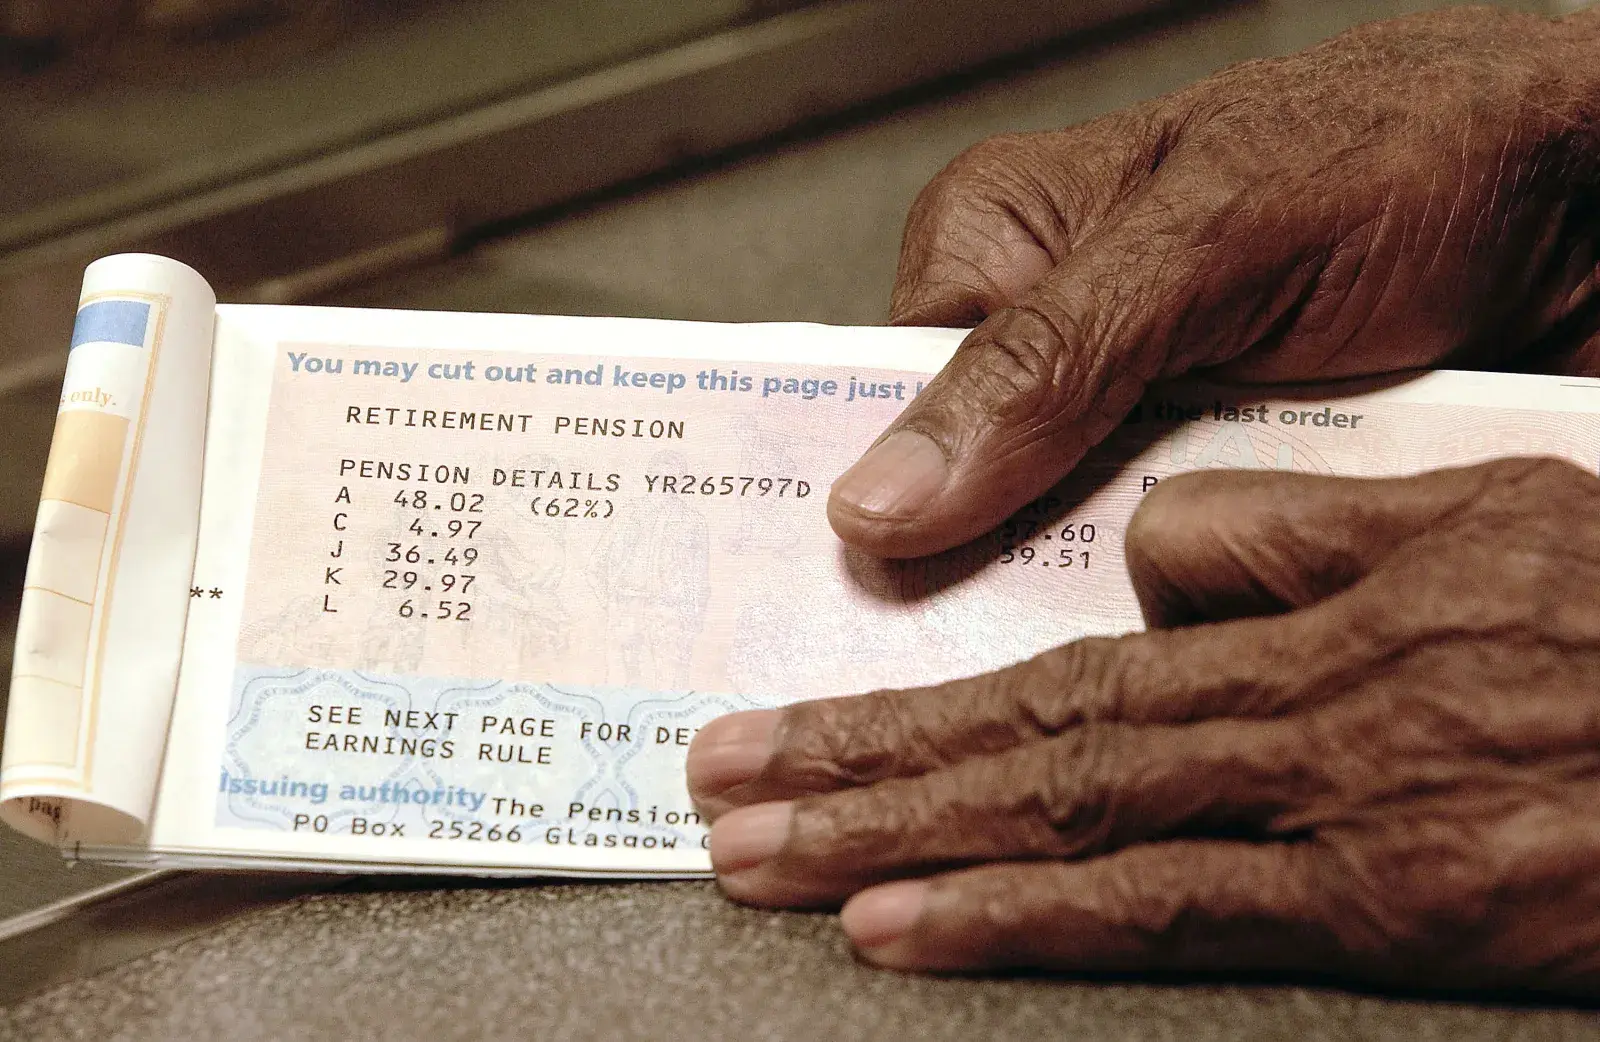 only.
You may cut out and keep this page just the last order
RETIREMENT PENSION
PENSION DETAILS YR265797D
A 48.02 (62%)
C 4.97 .60
J 36.49 59.51
K 29.97
**
L 6.52
SEE NEXT PAGE FOR
EARNINGS RULE
Issuing authority The Pension
PO Box 25266 Glasgow